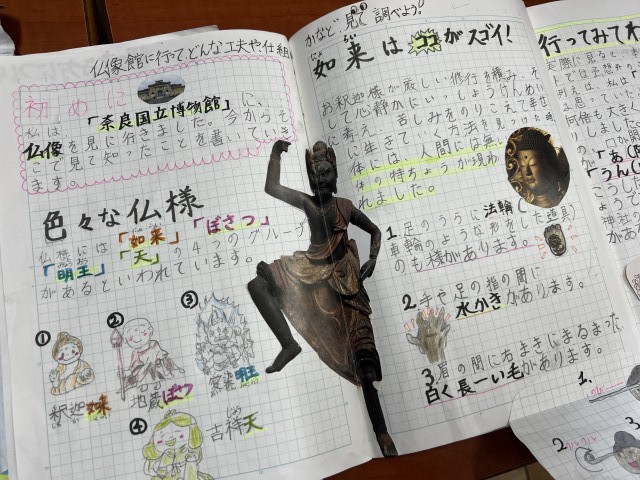 仏像館に行って、どんな工夫や仕組
初めに
私は、「奈良国立博物館」に、
仏像を見に行きました。今からそ
こで見て知ったことを書いていき
ます。
色々な仏様
仏様には「如来」「ぼさつ」
「明王」「天」の4つのグループ
があるといわれています。
①
②
③
釈迦如来
地蔵ぼさつ
明王
④
吉祥天
かなど見に調べよう!
如来はココがスゴイ!
お釈迦様が厳しい修行を積み、そ
して心静かにいっしょうけんめい
に考え、苦しみをのりこえて幸せ
に生きていく方法を見つけた時
体には、人間には無い
体の特ちょうが現わ
れました。
1.足のうらに法輪(
車輪のような形をした道具)
のも様があります。
2手や足の指の間に
水かきがあります。
3眉の間に右まきにまるまった、
白く長ーい毛があります。
行ってみてわ
「あ(
「うん(
1.
2
3